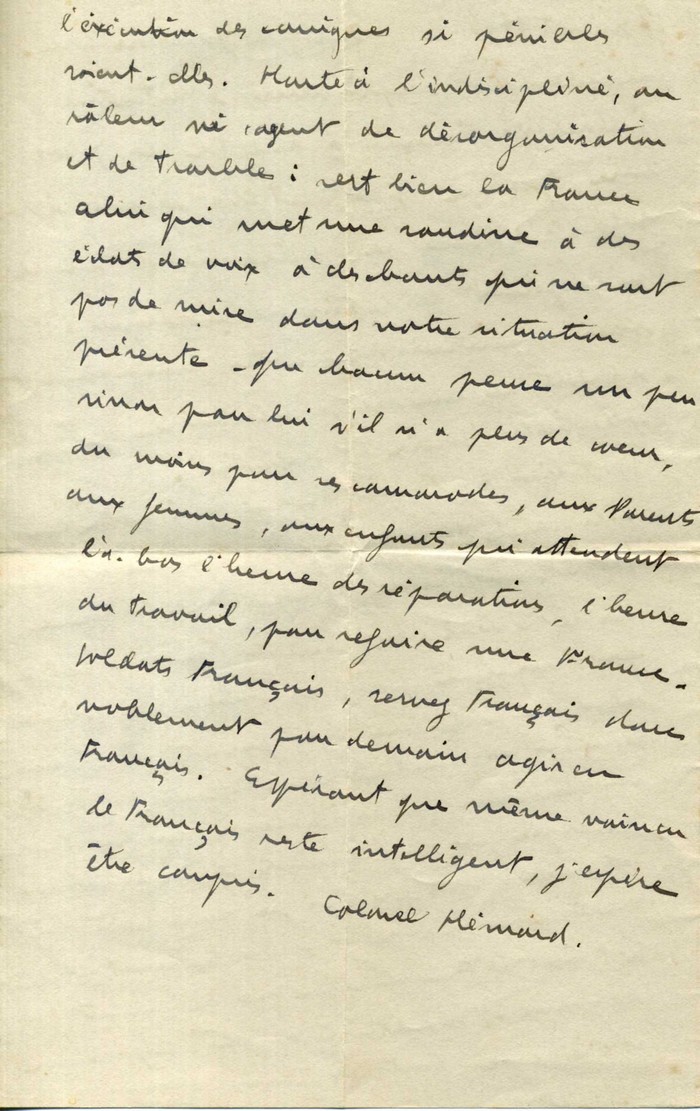 l'éxécution des consignes si pénibles
soient-elles. Honte à l'indiscipliné, au
râleur né agent de désorganisation
et de trouble ; sert bien la France
celui qui met une sourdine à des
éclats de voix à des chants qui ne sont
pas de mise dans notre situation
présente - que chacun pense un peu
sinon pour lui s'il n'a plus de coeur,
du moins pour ses camarades, aux Parents
aux femmes, aux enfants qui attendent
là-bas l'heure des réparations, l'heure
du travail, pour refaire une France.
Soldats Français, servez Français donc
noblement pour demain agir en
Français. Espérant que même vaincu
le Français reste intelligent, j'espère
être compris. Colonel Hémard.